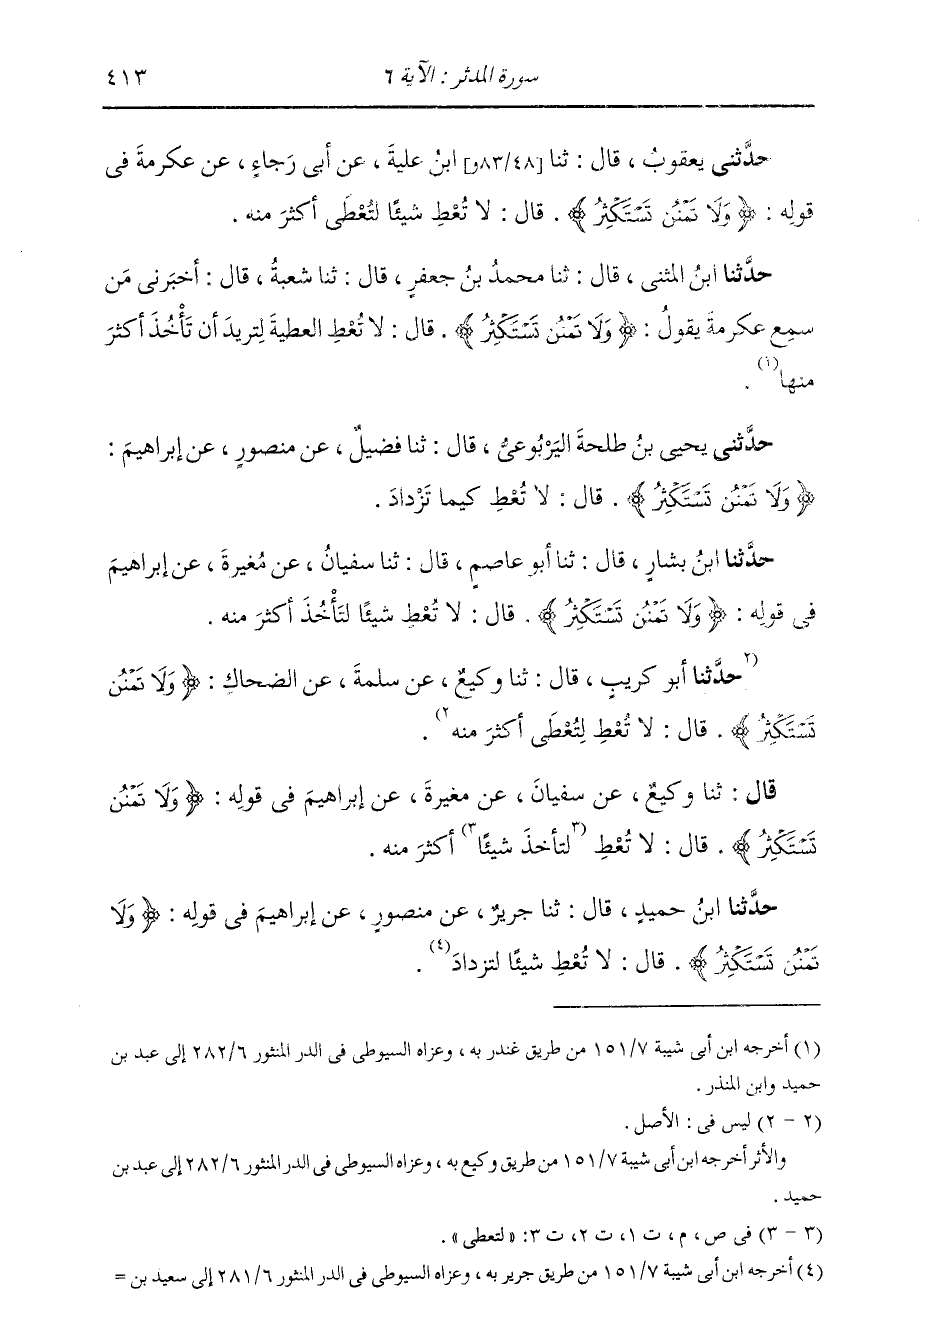 سورة المدثر : الآية ٦ ٤١٣
حدَّثنى يعقوبُ ، قال : ثنا [٨٣/٤٨و] ابنُ عليةَ ، عن أبى رَجاءٍ ، عن عكرمةَ فى
قولِه : ﴿ وَلَا تَمْنُن تَسْتَكْثِرُ ﴾ . قال : لا تُعْطِ شيئًا لتُعْطَى أكثرَ منه .
حدَّثنا ابنُ المثنى ، قال : ثنا محمدُ بنُ جعفرٍ ، قال : ثنا شعبةُ ، قال : أخبَرنى مَن
سمِع عكرمةَ يقولُ : ﴿ وَلَا تَمْنُن تَسْتَكْثِرُ ﴾ . قال : لا تُعْطِ العطيةَ لِتريدَ أن تَأْخُذَ أكثرَ
منها(١) .
حدَّثنى يحيى بنُ طلحةَ اليَرْبُوعىُّ ، قال : ثنا فضيلٌ ، عن منصورٍ ، عن إبراهيمَ :
﴿ وَلَا تَمْنُن تَسْتَكْثِرُ ﴾ . قال : لا تُعْطِ كيما تَزْدادَ .
حدَّثنا ابنُ بشارٍ ، قال : ثنا أبو عاصمٍ ، قال : ثنا سفيانُ ، عن مُغيرةَ ، عن إبراهيمَ
فى قولِه : ﴿ وَلَا تَمْنُن تَسْتَكْثِرُ ﴾ . قال : لا تُعْطِ شيئًا لتَأْخُذَ أكثرَ منه .
(٢حدَّثنا أبو كريبٍ ، قال : ثنا وكيعٌ ، عن سلمةَ ، عن الضحاكِ : ﴿ وَلَا تَمْنُن
تَسْتَكْثِرُ ﴾ . قال : لا تُعْطِ لِتُعْطَى أكثرَ منه٢) .
قال : ثنا وكيعٌ ، عن سفيانَ ، عن مغيرةَ ، عن إبراهيمَ فى قولِه : ﴿ وَلَا تَمْنُن
تَسْتَكْثِرُ ﴾ . قال : لا تُعْطِ (٣لتأخذَ شيئًا٣) أكثرَ منه .
حدَّثنا ابنُ حميدٍ ، قال : ثنا جريرٌ ، عن منصورٍ ، عن إبراهيمَ فى قولِه : ﴿ وَلَا
تَمْنُن تَسْتَكْثِرُ ﴾ . قال : لا تُعْطِ شيئًا لتزدادَ(٤) .
(١) أخرجه ابن أبى شيبة ١٥١/٧ من طريق غندر به ، وعزاه السيوطى فى الدر المنثور ٢٨٢/٦ إلى عبد بن
حميد وابن المنذر .
(٢ - ٢) ليس فى : الأصل .
والأثر أخرجه ابن أبى شيبة ١٥١/٧ من طريق وكيع به ، وعزاه السيوطى فى الدر المنثور ٢٨٢/٦ إلى عبد بن
حميد .
(٣ - ٣) فى ص ، م ، ت ١، ت ٢، ت ٣: « لتعطى » .
(٤) أخرجه ابن أبى شيبة ١٥١/٧ من طريق جرير به ، وعزاه السيوطى فى الدر المنثور ٢٨١/٦ إلى سعيد بن =